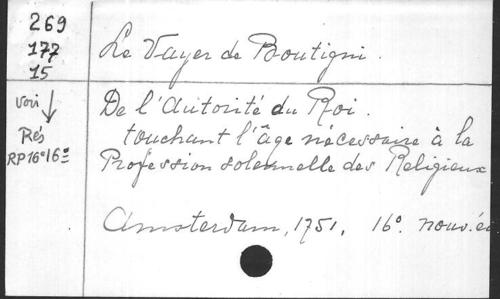 269
177
15
voir
Rés
RP16°16
Le Vayer de Boutigni.
De l'Autorité du Roi.
touchant l'âge nécessaire à la
Profession solennelle des Religieux
Amsterdam, 1751. 16°. nouv. éd